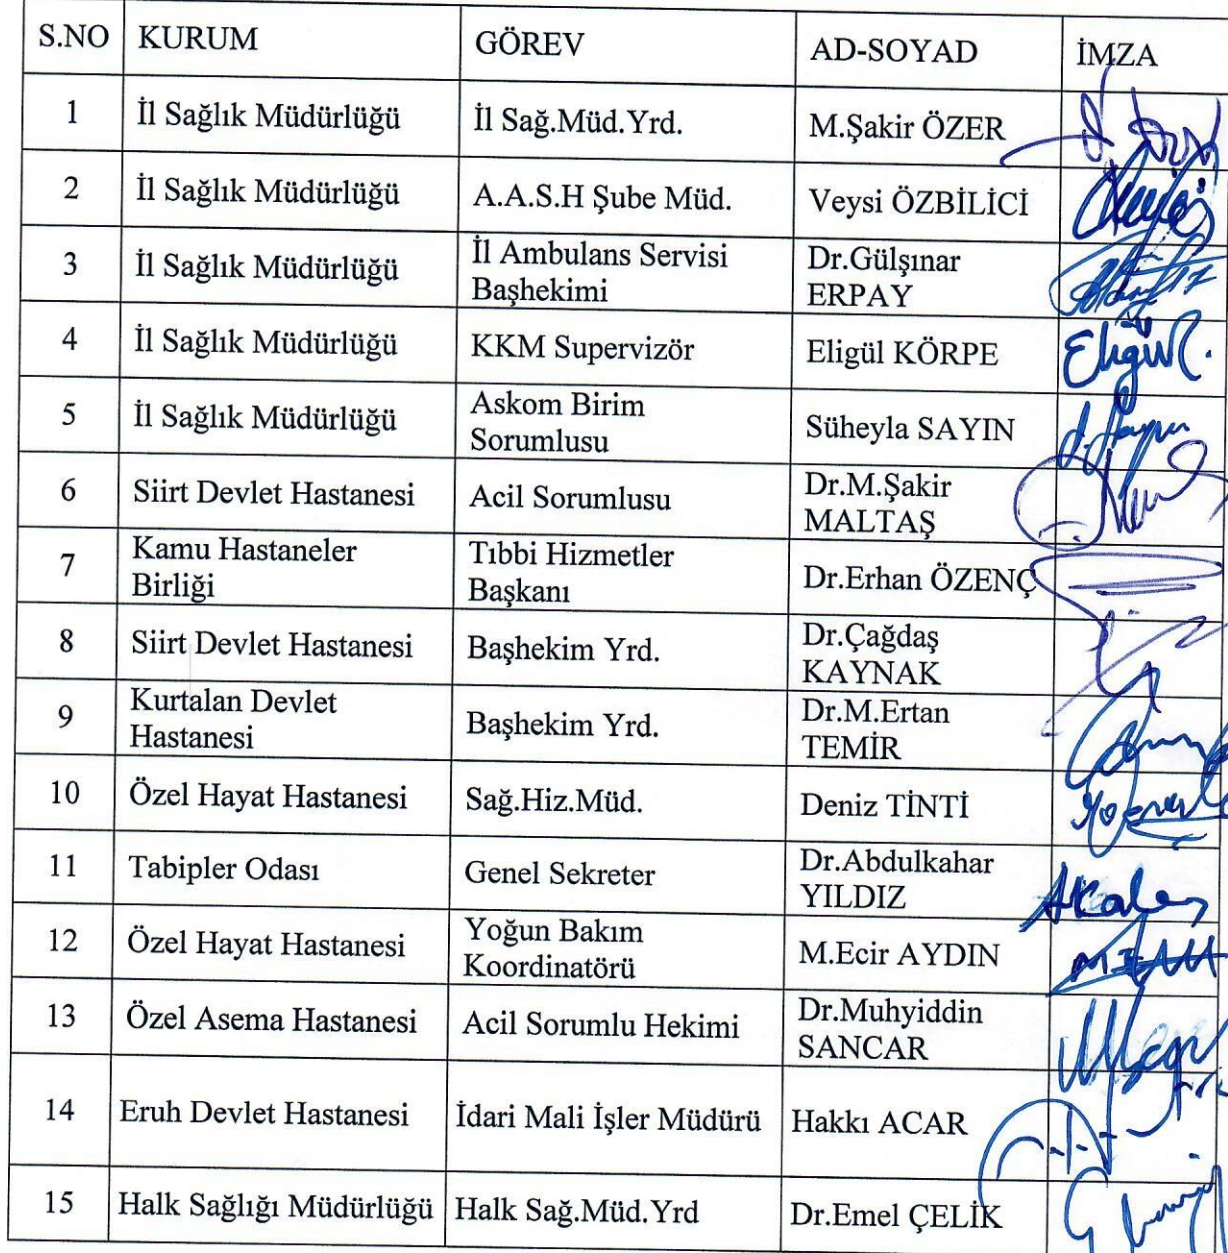 S.NO KURUM GÖREV AD-SOYAD İMZA
1 İl Sağlık Müdürlüğü İl Sağ.Müd.Yrd. M.Şakir ÖZER
2 İl Sağlık Müdürlüğü A.A.S.H Şube Müd. Veysi ÖZBİLİCİ
3 İl Sağlık Müdürlüğü İl Ambulans Servisi Dr.Gülşınar
Başhekimi ERPAY
4 İl Sağlık Müdürlüğü KKM Supervizör Eligül KÖRPE
5 İl Sağlık Müdürlüğü Askom Birim Süheyla SAYIN
Sorumlusu
6 Siirt Devlet Hastanesi Acil Sorumlusu Dr.M.Şakir
MALTAŞ
7 Kamu Hastaneler Tıbbi Hizmetler Dr.Erhan ÖZENÇ
Birliği Başkanı
8 Siirt Devlet Hastanesi Başhekim Yrd. Dr.Çağdaş
KAYNAK
9 Kurtalan Devlet Başhekim Yrd. Dr.M.Ertan
Hastanesi TEMİR
10 Özel Hayat Hastanesi Sağ.Hiz.Müd. Deniz TİNTİ
11 Tabipler Odası Genel Sekreter Dr.Abdulkahar
YILDIZ
12 Özel Hayat Hastanesi Yoğun Bakım M.Ecir AYDIN
Koordinatörü
13 Özel Asema Hastanesi Acil Sorumlu Hekimi Dr.Muhyiddin
SANCAR
14 Eruh Devlet Hastanesi İdari Mali İşler Müdürü Hakkı ACAR
15 Halk Sağlığı Müdürlüğü Halk Sağ.Müd.Yrd Dr.Emel ÇELİK